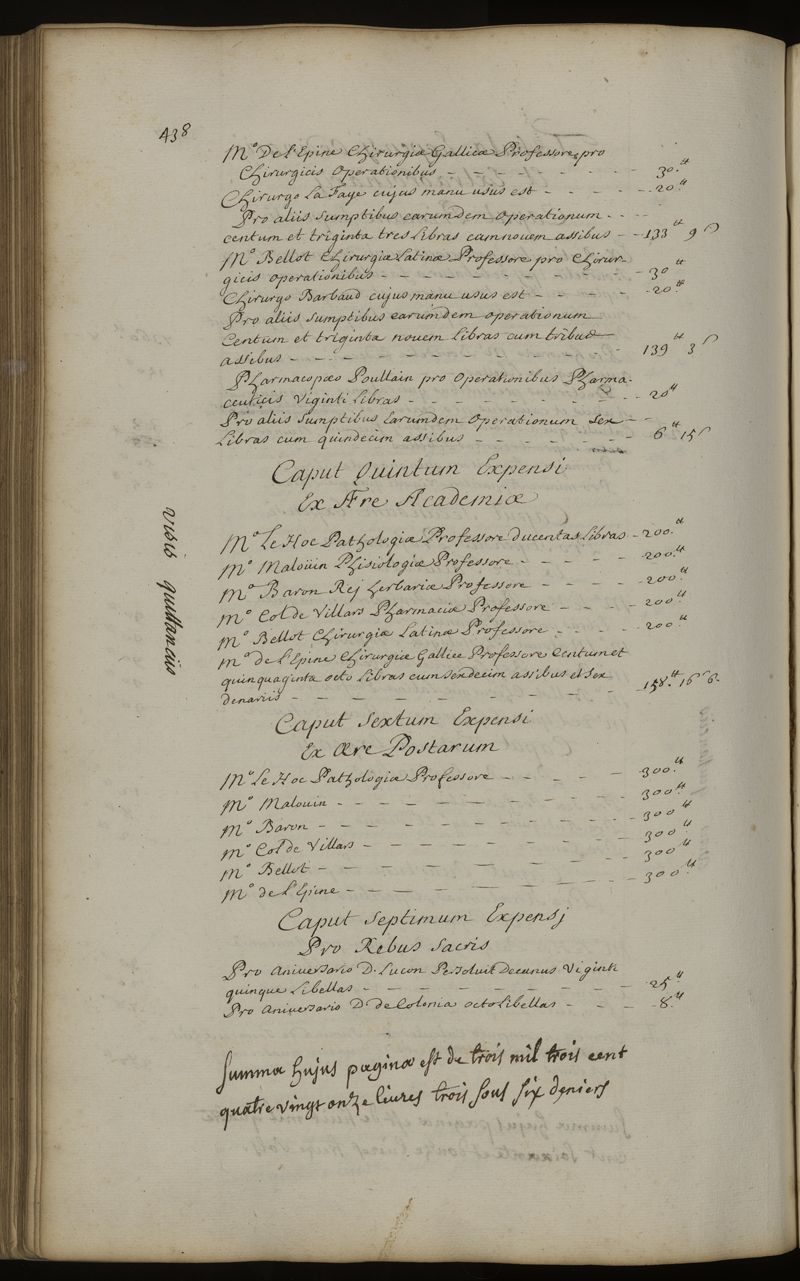 438
M.º De l'Epine Chirurgiæ Gallicæ Professore pro
Chirurgicis Operationibus - - - - - - - - 30.tt
Chirurgo La Faye cujus manu usus est - - - - - 20.tt
Pro aliis Sumptibus earumdem Operationum - - -
centum et triginta tres Libras cum novem assibus - - 133tt 9s
M.º Bellot Chirurgiæ Latinæ Professore pro Chirur-
gicis operationibus - - - - - - - - - - - 30tt
Chirurgo Barbaud cujus manu usus est - - - - - 20.tt
Pro aliis Sumptibus earumdem operationum
Centum et triginta novem Libras cum tribus
assibus - - - - - - - - - - - - - 139tt 3s
Pharmacopæo Poullain pro Operationibus Pharma-
ceuticis Viginti Libras - - - - - - - - - 20tt
Pro aliis Sumptibus Earumdem Operationum Sex - -
Libras cum quindecim assibus - - - - - - - 6tt 15s
Caput Quintum Expensi
Ex Ære Academiæ
Visis quittanciis
M.º Le Hoc Pathologiæ Professore ducentas Libras - 200.tt
M.º Maloüin Phisiologiæ Professore - - - - - 200.tt
M.º Baron Rej herbariæ Professore - - - - - 200.tt
M.º Col de Villars Pharmaciæ Professore - - - - 200.tt
M.º Bellot Chirurgiæ Latinæ Professore - - - - 200.tt
M.º de l'Epine Chirurgiæ Gallicæ Professore Centum et
quinquaginta octo Libras cum sendecim assibus et sex
denariis - - - - - - - - - - - - - 158.tt 16s 6.
Caput Sextum Expensi
Ex Ære Postarum
M.º Le Hoc Pathologiæ Professore - - - - - 300.tt
M.º Malouin - - - - - - - - - - - 300.tt
M.º Baron - - - - - - - - - - - - 300.tt
M.º Col de Villars - - - - - - - - - - 300.tt
M.º Bellot - - - - - - - - - - - - 300.tt
M.º de l'Epine - - - - - - - - - - - 300.tt
Caput Septimum Expensj
Pro Rebus Sacris
Pro Aniversario D. Lucon Persoluit Decanus Viginti
quinque Libellas - - - - - - - - - - - 25.tt
Pro Aniversario D. de Colonia octo Libellas - - - - 8.tt
Summa hujus paginæ est de trois mil trois cent
quatre vingt onze livres trois sous six deniers